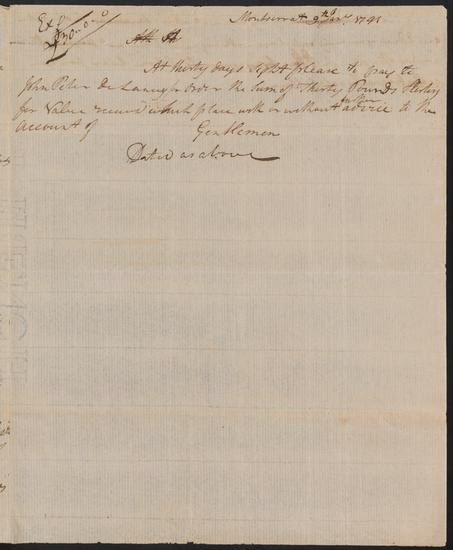 Montserrat 9th Jany. 1791
Ex £
£30..0..0
At thirty days sight please to pay to
John Peter De Lancy or Order the Sum of Thirty Pounds Sterling
for Value received which place with or without further advice to the
Account of Gentlemen
Dated as above